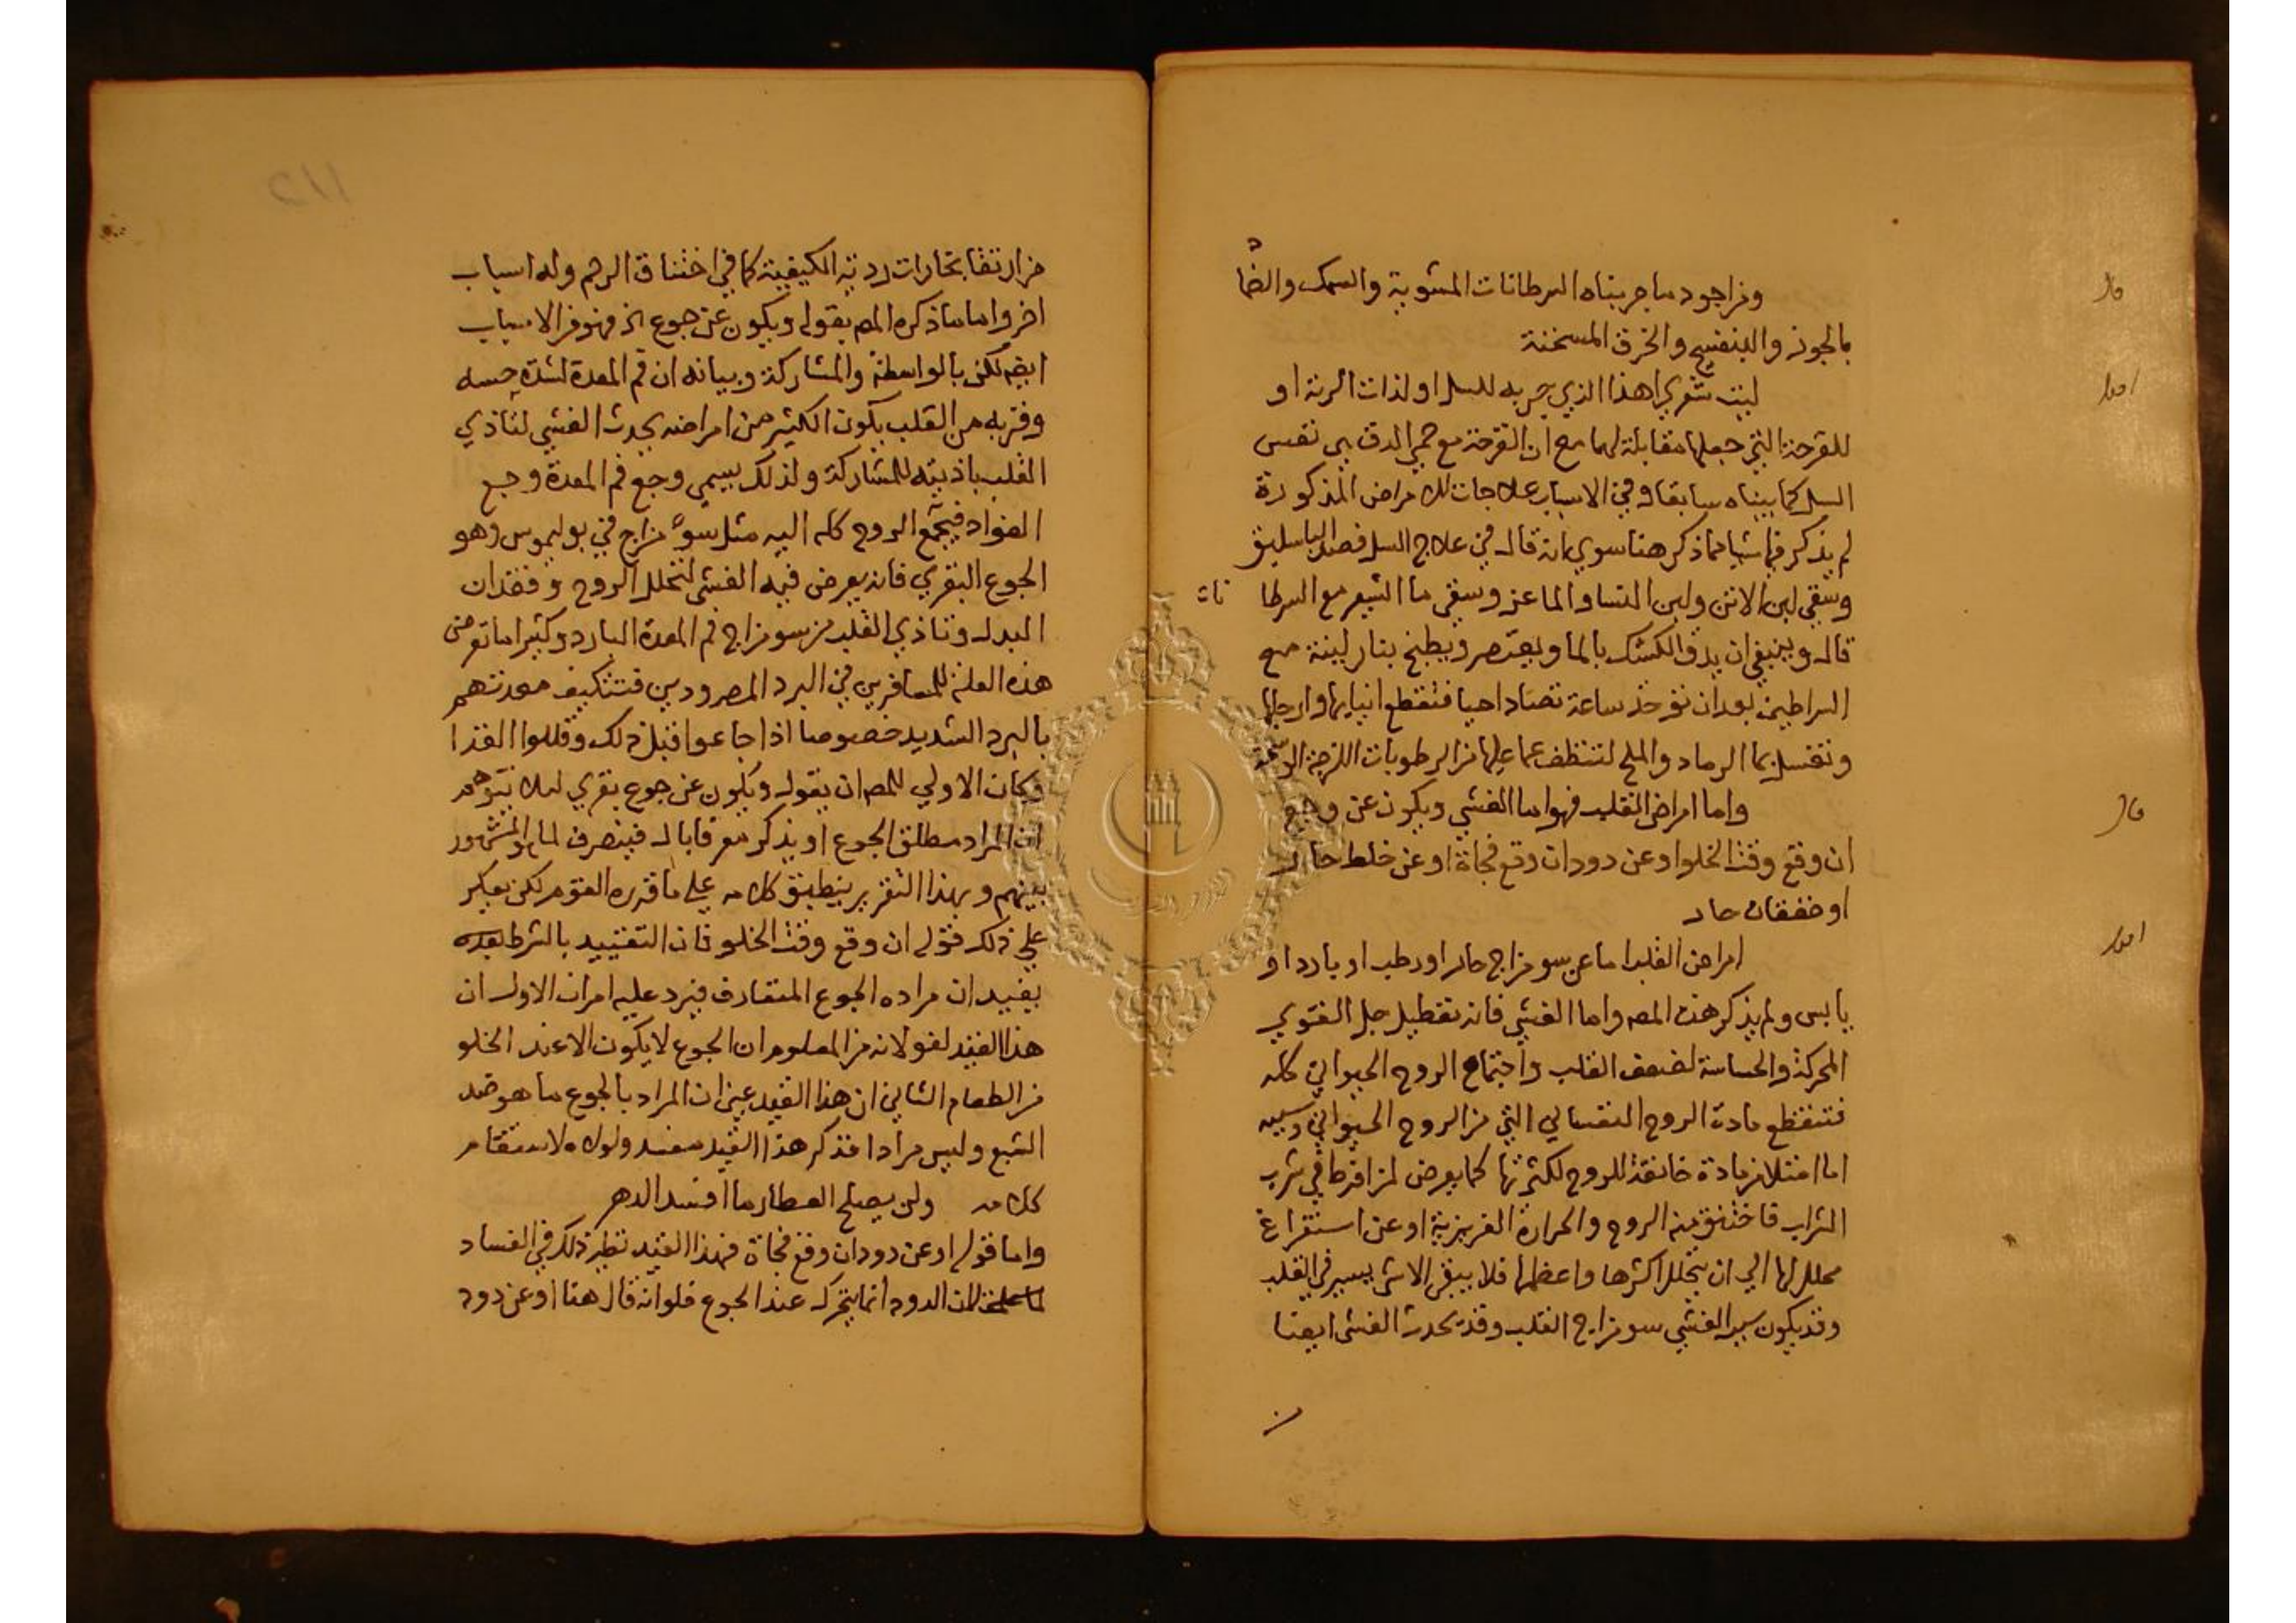 قال
ومن اجود ما جربناه السرطانات المشوية والسمك والضماد
بالجوز والبنفسج والخرق المسخنة
اقول
ليت شعري اهذا الذي جربه للسل او لذات الرئة او
للقرحة التي جعلها مقابلة لهما مع ان القرحة مع حمي الدق هي نفس
السل كما بيناه سابقا وفي الاسباب علاجات للامراض المذكورة
لم يذكر فيها شيا مما ذكر هنا سوي انه قال في علاج السل فصد الباسليق
وسقي لبن الاتن ولبن النسا والماعز وسقي ما الشعير مع السرطا نات
قال وينبغي ان يدق الكشك بالما ويعتصر ويطبخ بنار لينة مع
السراطين بعد ان توخذ ساعة تصاد احيا فتقطع انيابها وارجلها
وتغسل بما الرماد والملح لتنظف عما عليها من الرطوبات اللزجة الوسخة
قال
واما امراض القلب فهو اما الغشي ويكون عن وجع
ان وقع وقت الخلو او عن دود ان وقع فجاة او عن خلط حار
او خفقان حار
اقول
امراض القلب اما عن سو مزاج حار او رطب او بارد او
يابس ولم يذكر هذه المص واما الغشي فانه تعطيل جل القوي
المحركة والحساسة لضعف القلب واجتماع الروح الحيواني كله
فتنقطع مادة الروح النفساني التي من الروح الحيواني وسببه
اما امتلا من مادة خانقة للروح لكثرتها كما يعرض لمن افرط في شرب
الشراب فاختنق منه الروح والحرارة الغريزية او عن استفراغ
محلل لها الي ان يتحلل اكثرها واعظمها فلا يبقي الا شي يسير في القلب
وقد يكون سبب الغشي سو مزاج القلب وقد يحدث الغشي ايضا
من
١١٥
من ارتقا بخارات ردية الكيفية كما في اختناق الرحم وله اسباب
اخر واما ما ذكره المص بقوله ويكون عن جوع الخ فهو من الاسباب
ايضا لكن بالواسطة والمشاركة وبيانه ان فم المعدة لشدة حسه
وقربه من القلب يكون الكثير من امراضه يحدث الغشي لتاذي
القلب باذيته للمشاركة ولذلك يسمي وجع فم المعدة وجع
الفواد فيجمع الروح كله اليه مثل سوء مزاج في بوليموس وهو
الجوع البقري فانه يعرض فيه الغشي لتحلل الروح وفقدان
البدل وتاذي القلب من سو مزاج فم المعدة البارد وكثيرا ما تعرض
هذه العلة للمسافرين في البرد المصرودين فتتكيف معدتهم
بالبرد الشديد خصوصا اذا جاعوا قبل ذلك وقللوا الغذا
وكان الاولي للمص ان يقول ويكون عن جوع بقري ليلا يتوهم
ان المراد مطلق الجوع او يذكر معرفا بال فينصرف لما هو المشهور
بينهم وبهذا التقرير ينطبق كلامه علي ما قرره القوم لكن يعكر
علي ذلك قوله ان وقع وقت الخلو فان التقييد بالشرط بعده
يفيد ان مراده الجوع المتعارف فيرد عليه امران الاول ان
هذا القيد لغو لانه من المعلوم ان الجوع لا يكون الا عند الخلو
من الطعام الثاني ان هذا القيد عين ان المراد بالجوع ما هو ضد
الشبع وليس مرادا فذكر هذا القيد مفسد ولولاه لاستقام
كلامه ولن يصلح العطار ما افسد الدهر
واما قوله او عن دود ان وقع فجاة فهذا القيد نظير ذلك في الفساد
لما علمت لان الدود انما يتحرك عند الجوع فلو انه قال هنا او عن دود